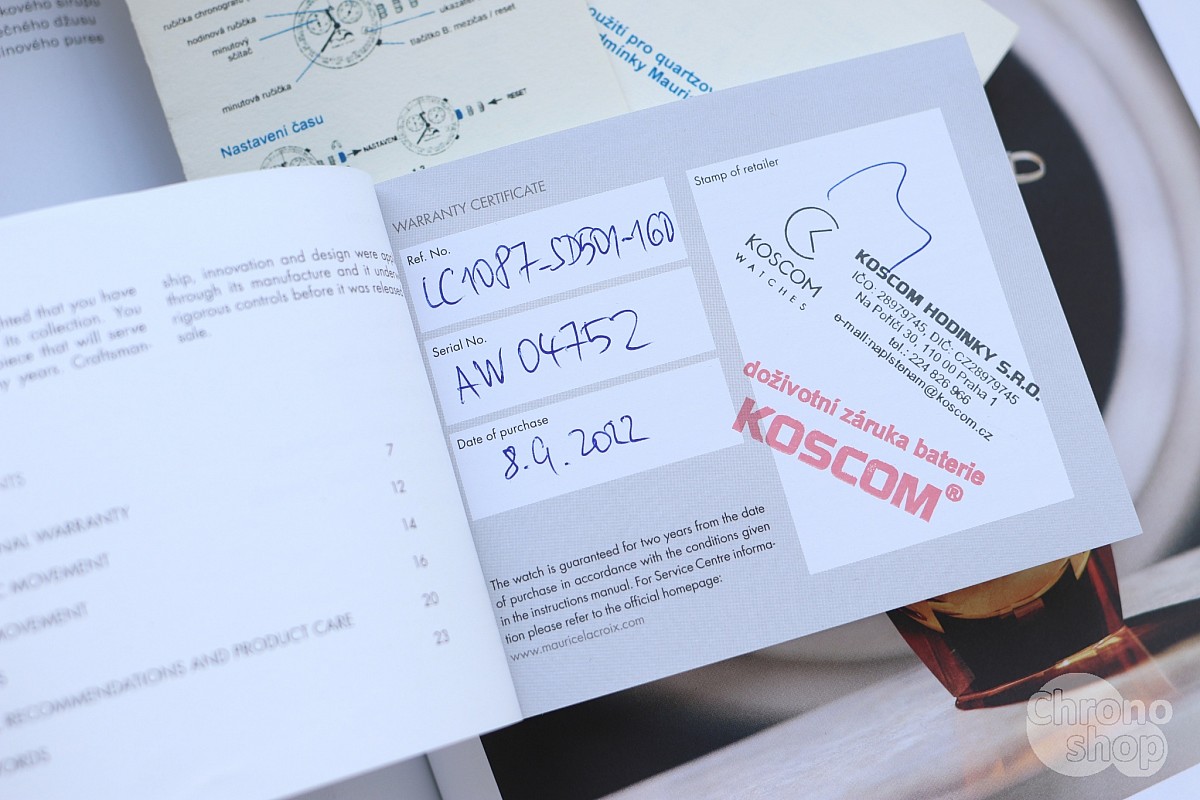 kového sirupu
ečného džusu
inového puree
ručička chronografu
hodinová ručička
minutový
sčítač
minutová ručička
ukaza
tlačítko B: mezičas / reset
Nastavení času
NASTAVENÍ
RESET
oužití pro quartzov
dmínky Mauri
hted that you have
its collection. You
piece that will serve
ny years. Craftsman-
ship, innovation and design were app
through its manufacture and it under
rigorous controls before it was released
sale.
7
NTS 12
NAL WARRANTY 14
C MOVEMENT 16
MOVEMENT 20
S 23
RECOMMENDATIONS AND PRODUCT CARE
ORDS
WARRANTY CERTIFICATE
Ref. No.
LC1087-SD501-160
Serial No.
AW 04752
Date of purchase
8.9.2022
The watch is guaranteed for two years from the date
of purchase in accordance with the conditions given
in the instructions manual. For Service Centre informa-
tion please refer to the official homepage:
www.mauricelacroix.com
Stamp of retailer
KOSCOM
WATCHES
KOSCOM HODINKY S.R.O.
IČO: 28979745, DIČ: CZ28979745
Na Poříčí 30, 110 00 Praha 1
tel.: 224 826 966
e-mail:napistenam@koscom.cz
doživotní záruka baterie
KOSCOM®
Chrono
shop